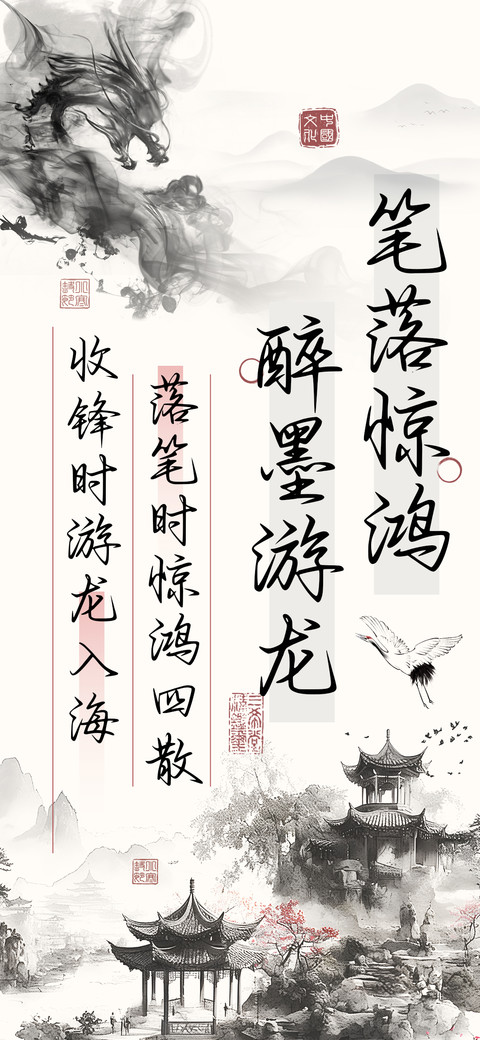 中國
文化
笔落惊鸿
醉墨游龙
落笔时惊鸿四散
收锋时游龙入海